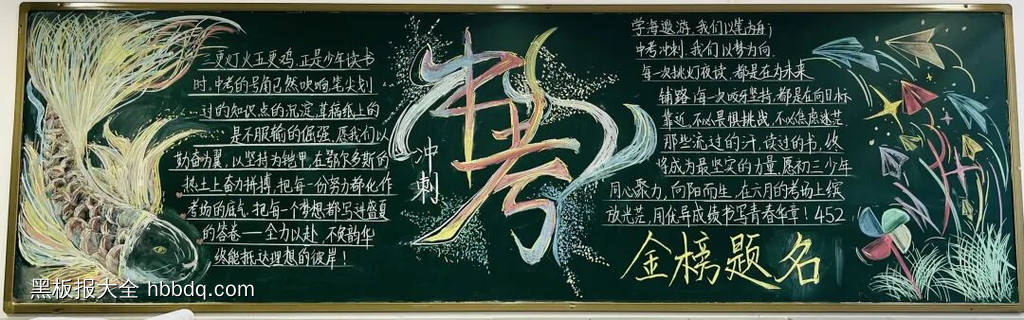 三更灯火五更鸡,正是少年读书
时,中考的号角已然吹响,笔尖划
过的知识点的沉淀,草稿纸上的
是不服输的倔强,愿我们以
勤奋为翼,以坚持为铠甲,在鄂尔多斯的
热土上奋力拼搏,把每一份努力都化作
考场的底气,把每一个梦想都写进盛夏
的答卷——全力以赴,不负韶华
终能抵达理想的彼岸!
中考
冲刺
学海遨游,我们以笔为舟;
中考冲刺,我们以梦为向.
每一次挑灯夜读,都是在为未来
铺路,每一次咬牙坚持,都是在向目标
靠近,不必畏惧挑战,不必焦虑迷茫
那些流过的汗,读过的书,终
将成为最坚定的力量.愿初三少年
同心聚力,向阳而生,在六月的考场上绽
放光芒,用优异成绩书写青春华章!452
金榜题名
黑板报大全 hbbdq.com